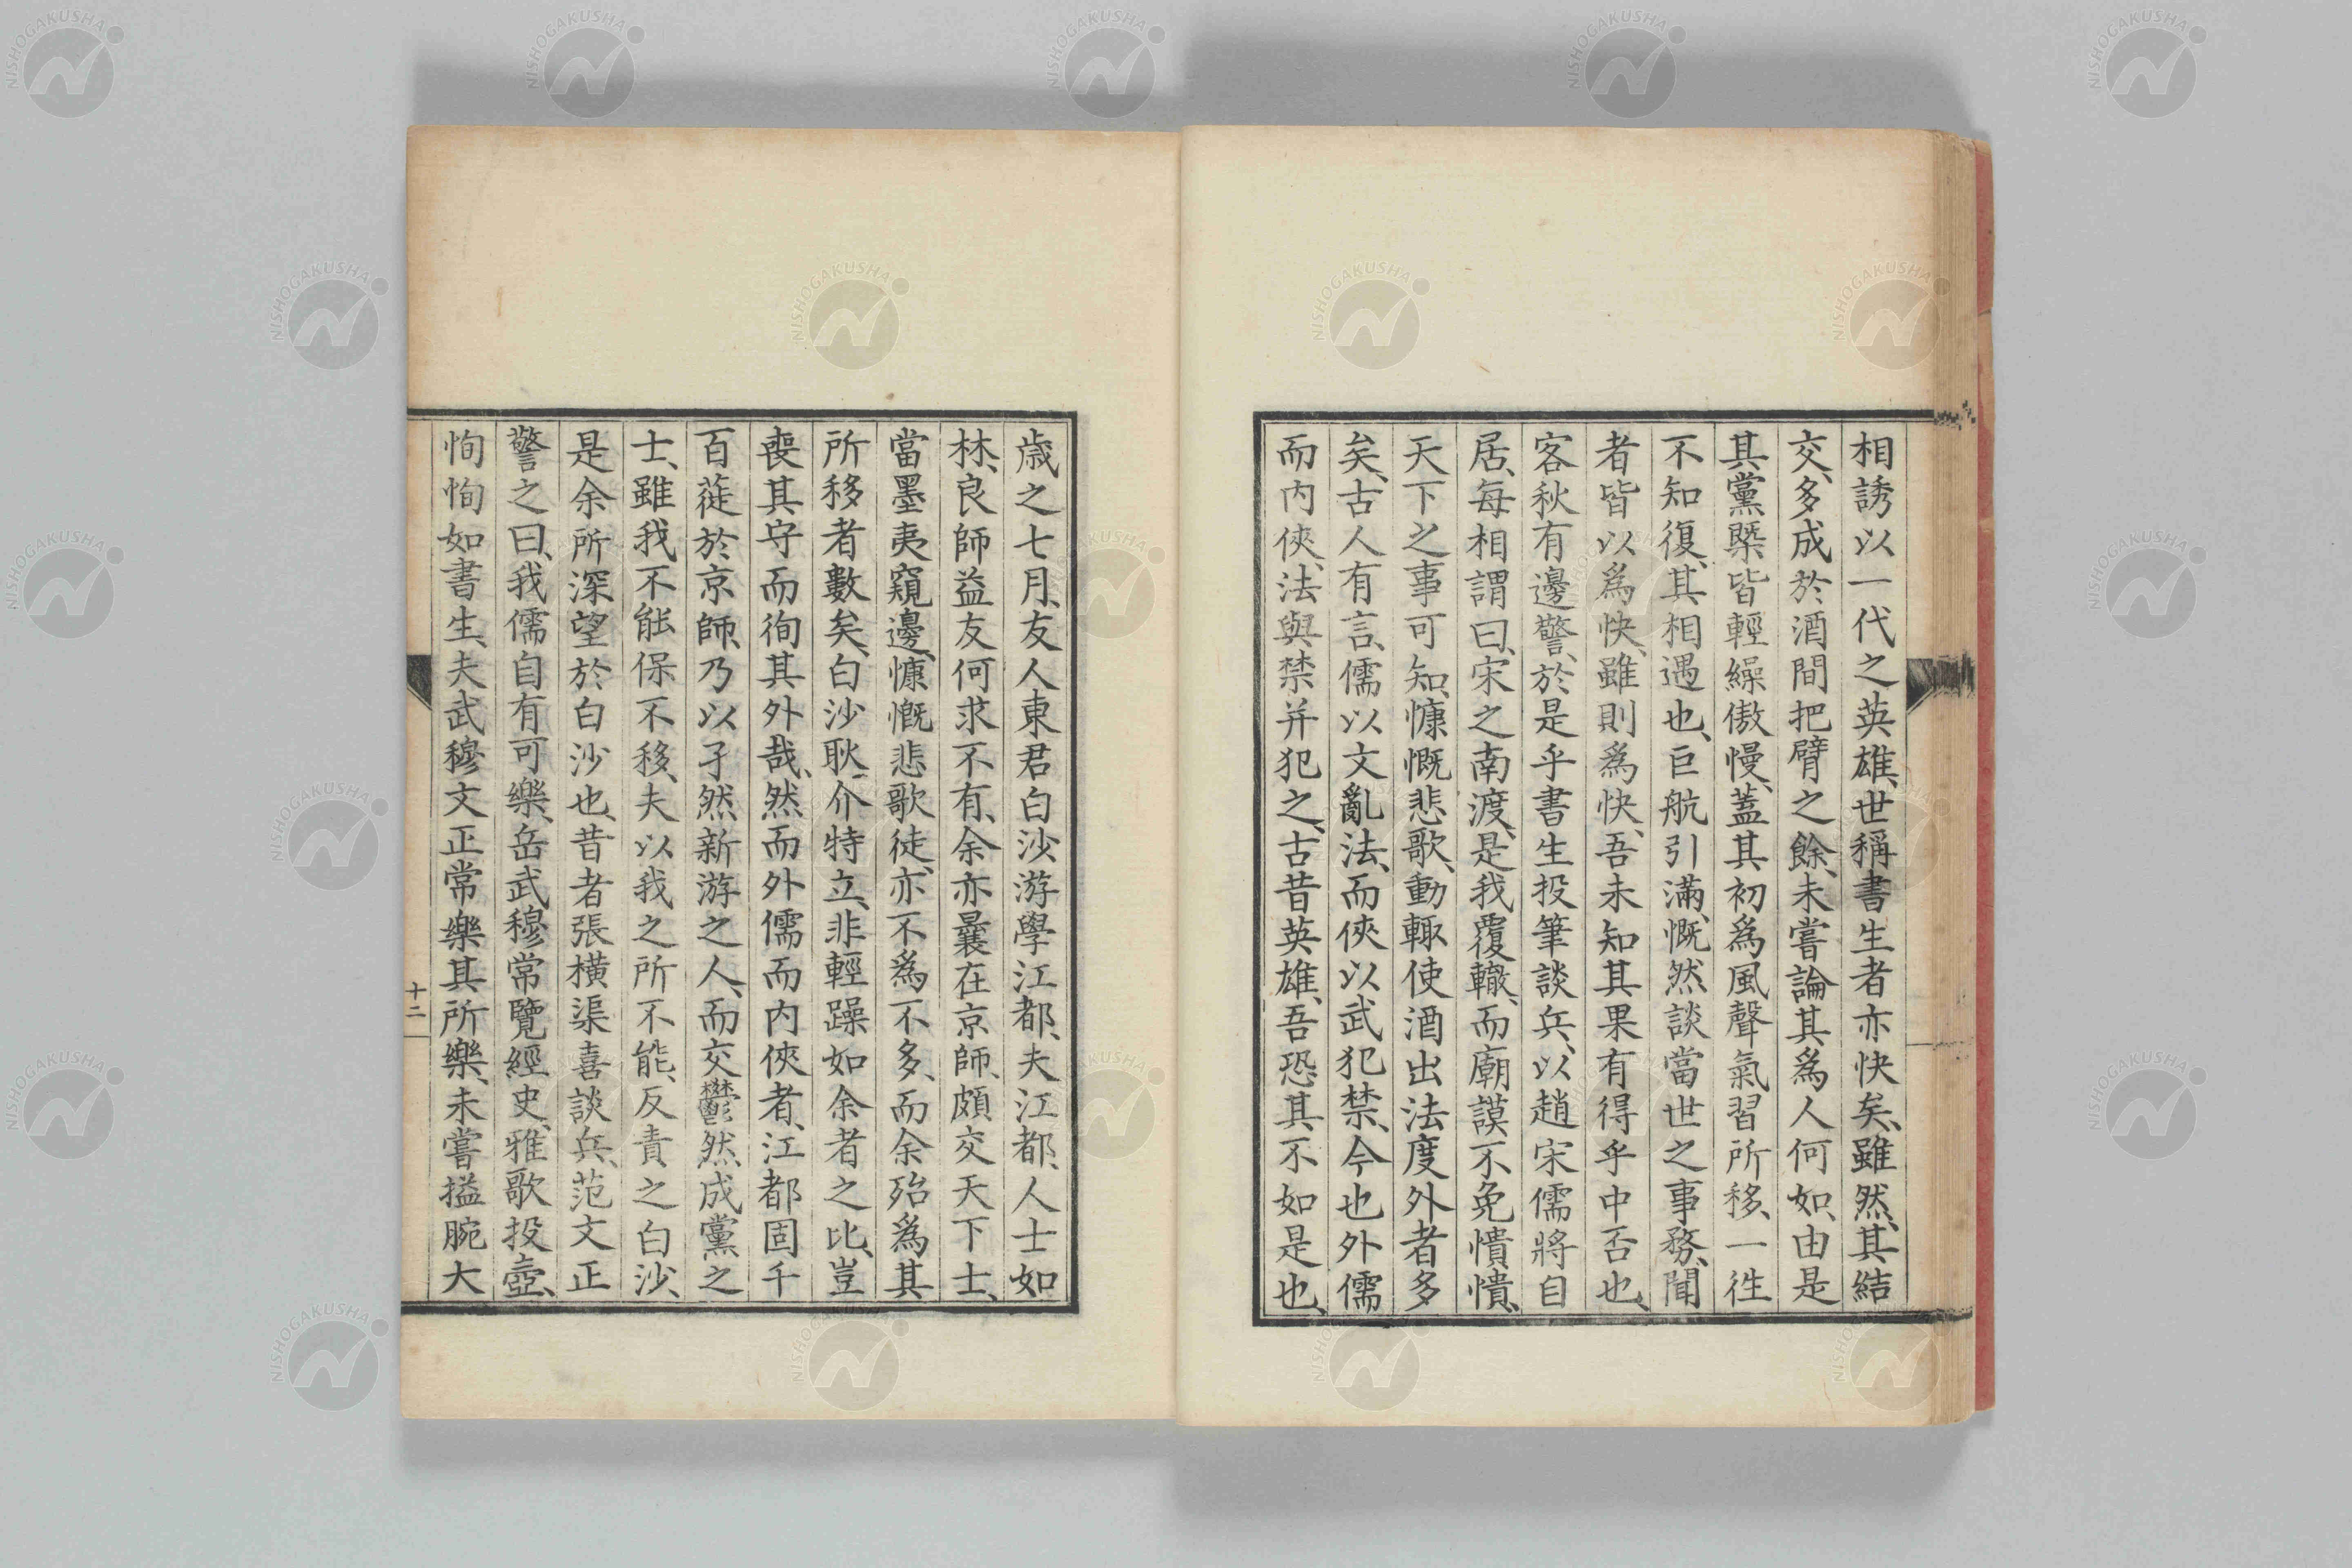 相誘以一代之英雄、世稱書生者亦快矣、雖然、其結
交、多成於酒間把臂之餘、未嘗論其爲人何如、由是
其黨槩皆輕繰傲慢、蓋其初爲風聲氣習所移、一徃
不知復、其相遇也、巨航引滿、慨然談當世之事務、聞
者皆以爲快、雖則爲快、吾未知其果有得乎中否也、
客秋有邊警、於是乎書生投筆談兵、以趙宋儒將自
居、每相謂曰、宋之南渡、是我覆轍、而廟謨不免憒憒、
天下之事可知、慷慨悲歌、動輙使酒出法度外者多
矣、古人有言、儒以文亂法、而俠以武犯禁、今也外儒
而内俠、法與禁并犯之、古昔英雄、吾恐其不如是也、
歳之七月、友人東君白沙、游學江都、夫江都、人士如
林、良師益友何求不有、余亦曩在京師、頗交天下士、
當墨夷窺邊、慷慨悲歌徒、亦不爲不多、而余殆爲其
所移者數矣、白沙耿介特立、非輕躁如余者之比、豈
喪其守而徇其外哉、然而外儒而内俠者、江都固千
百蓰於京師、乃以孑然新游之人、而交鬱然成黨之
士、雖我不能保不移、夫以我之所不能、反責之白沙、
是余所深望於白沙也、昔者張橫渠喜談兵、范文正
警之曰、我儒自有可樂、岳武穆常覽經史、雅歌投壺、
恂恂如書生、夫武穆文正常樂其所樂、未嘗搤腕大
十二
NISHOGAKUSHA